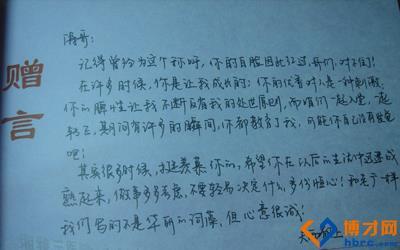 赠言
涛哥:
记得曾经为这个称呼,你的耳膜因此红过,哥们,对不住!
在许多时候,你是让我成长的;你的优秀对人是一种刺激,
你的脾性让我不断反省我的处世原则,而咱们一起入党、一起
,其间有许多的瞬间,你都教育了我,可能你自己没有发觉
吧!
其实很多时候,挺羡慕你的,希望你在以后的生活中迅速成
熟起来,做事多考虑,不要轻易决定什么,多份恒心!和老广一样
我们写的不是华丽的词藻,但心意很诚!
博才网
hbrc.com